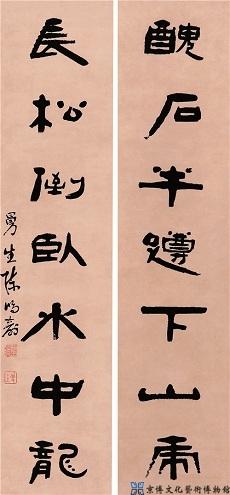 醜石半蹲下山虎
長松倒臥水中龍
曼生陳鴻壽
京博文化藝術博物館